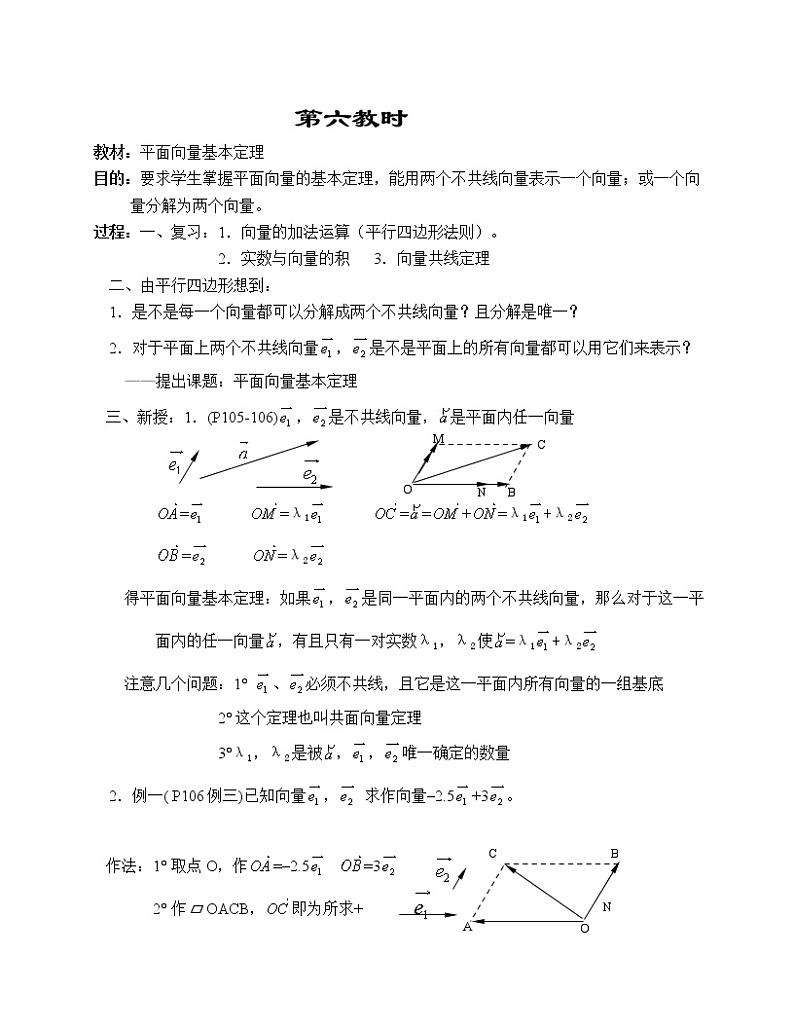 第六教时
教材:平面向量基本定理
目的:要求学生掌握平面向量的基本定理,能用两个不共线向量表示一个向量;或一个向
量分解为两个向量。
过程:一、复习:1.向量的加法运算(平行四边形法则)。
2.实数与向量的积 3.向量共线定理
二、由平行四边形想到:
1.是不是每一个向量都可以分解成两个不共线向量?且分解是唯一?
2.对于平面上两个不共线向量e₁,e₂是不是平面上的所有向量都可以用它们来表示?
——提出课题:平面向量基本定理
三、新授:1.(P105-106)e₁,e₂是不共线向量,a是平面内任一向量
e₁ a e₂ M C O N B
OA=e₁ OM=λ₁e₁ OC=a=OM+ON=λ₁e₁+λ₂e₂
OB=e₂ ON=λ₂e₂
得平面向量基本定理:如果e₁,e₂是同一平面内的两个不共线向量,那么对于这一平
面内的任一向量a,有且只有一对实数λ₁,λ₂使a=λ₁e₁+λ₂e₂
注意几个问题:1° e₁、e₂必须不共线,且它是这一平面内所有向量的一组基底
2°这个定理也叫共面向量定理
3°λ₁,λ₂是被a,e₁,e₂唯一确定的数量
2.例一( P106例三)已知向量e₁,e₂ 求作向量−2.5e₁+3e₂。
作法:1°取点O,作OA=−2.5e₁ OB=3e₂
2°作▱OACB,OC即为所求+
e₂ e₁ C B A O N